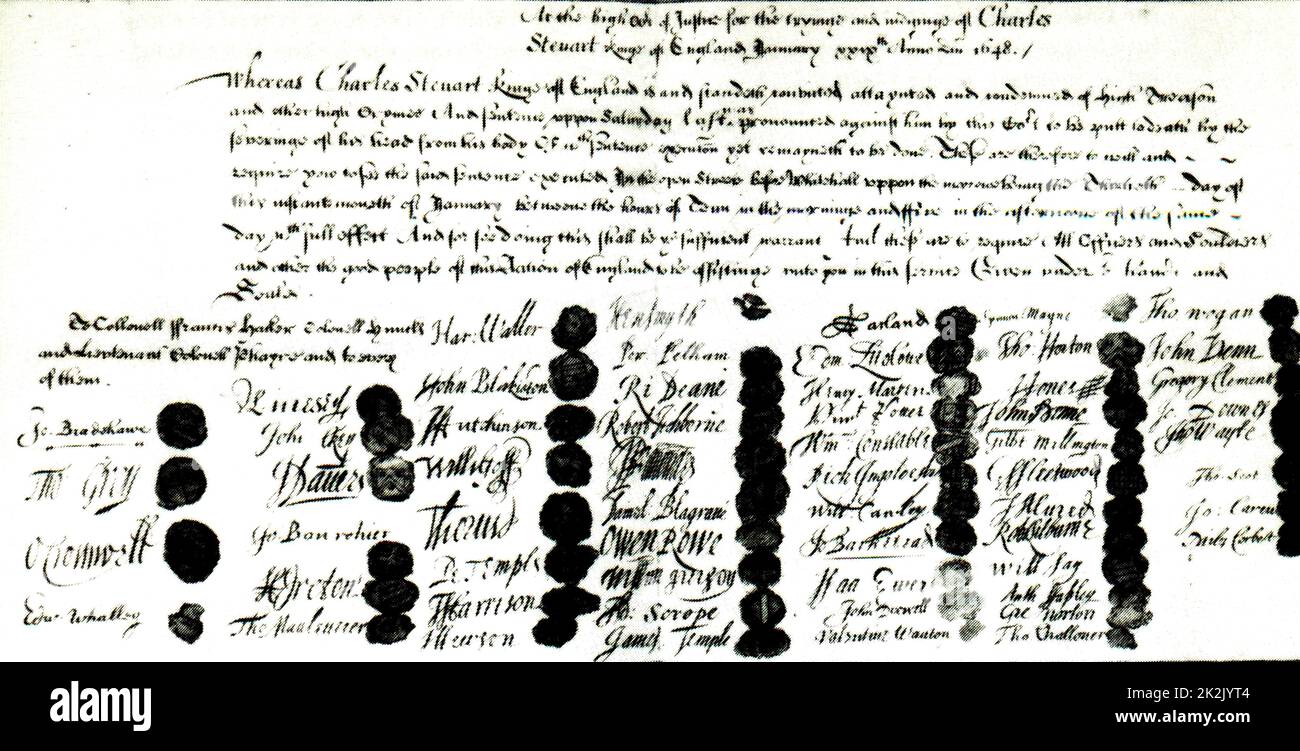 At the high Cot of Justice for the tryinge and iudginge of Charles
Steuart Kinge of England January xxixth Anno Dni 1648./
Whereas Charles Steuart Kinge of England is and standeth convicted attaynted and condemned of High Treason
and other high Crymes And sentence uppon Saturday last was pronounced against him by this Cort to be putt to death by the
severinge of his head from his body Of wch sentence execucon yet remayneth to be done These are therefore to will and
require you to see the said sentence executed In the open Streete before Whitehall uppon the morrowe being the Thirtieth day of
this instante moneth of January betweene the houres of Tenn in the morninge and ffive in the afternoone of the same
day wth full effect And for soe doing this shall be yor sufficient warrant And these are to require All Officers and Souldiers
and other the good people of this Nation of England to be assistinge unto you in this service Given under or hands and
Seales
To Collonell ffrancis Hacker Colonell Huncks
and Lieutenant Colonell Phayre and to every
of them.
Jo. Bradshawe
Tho Grey
O Cromwell
Edw Whalley
M Livesey
John Okey
J Danvers
Jo Bourchier
H Ireton
Tho Mauleverer
Har. Waller
John Blakiston
J Hutchinson
Willi Goff
Tho Pride
Pe Temple
T Harrison
J Hewson
Hen Smyth
Per. Pelham
Ri Deane
Robert Tichborne
H Edwardes
Daniel Blagrave
Owen Rowe
William Purefoy
Ad: Scrope
James Temple
A Garland
Edm Ludlowe
Henry Marten
Vinct Potter
Wm Constable
Rich Ingoldesby
Will Cawley
Jo Barkstead
Isaa Ewer
John Dixwell
Valentine Wauton
Symon Mayne
Tho Horton
J Jones
John Penne
Gilbt Millington
G Fleetwood
J Alured
Rob Lilburne
Will Say
Anth Stapley
Gre Norton
Tho Challoner
Tho Wogan
John Venn
Gregory Clement
Jo Downes
Tho Wayte
Tho Scot
Jo Carew
Miles Corbet
a
alamy
Image ID: K2KJYT4
www.alamy.com